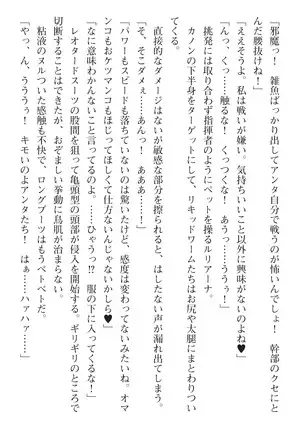 「邪魔っ！　雑魚ばっかり出してアンタ自分で戦うのが怖いんでしょ！　幹部のクセにと
んだ腰抜けね！」
「ええそうよ。私は戦いが嫌い。気持ちいいこと以外に興味がないのよね♥」
「んっ、くっ……触るな！　くっつくな！　あうっ……ううっ！」
挑発には取り合わず指揮者のようにペットを操るルリアーナ。
カノンの下半身をターゲットにして、リキッドワームたちはお尻や太腿にまとわりつい
てくる。
直接的なダメージはないが敏感な部分を擦られると、はしたない声が漏れ出てしまう。
「そ、そこダメぇ……あんっ！　あああっ！」
「パワーもスピードも落ちていないのは驚いたけど、感度は変わってないみたいね。オマ
ンコもおケツマンコもほじってほしくて仕方ないんじゃないかしら♥」
「なに意味わかんないこと言ってるのよ……ひゃうっ⁉　服の下に入ってくるな！」
レオタードスーツの股間を狙って亀頭型の頭部が侵入を企てる。ギリギリのところで
切断することはできたが、おぞましい挙動に鳥肌が治まらない。
粘液のヌルついた感触も不快で、ロングブーツはもうベトベトだ。
「やっ、ん、ううう！　キモいのよアンタたち！　はぁ……ハァハァ……」